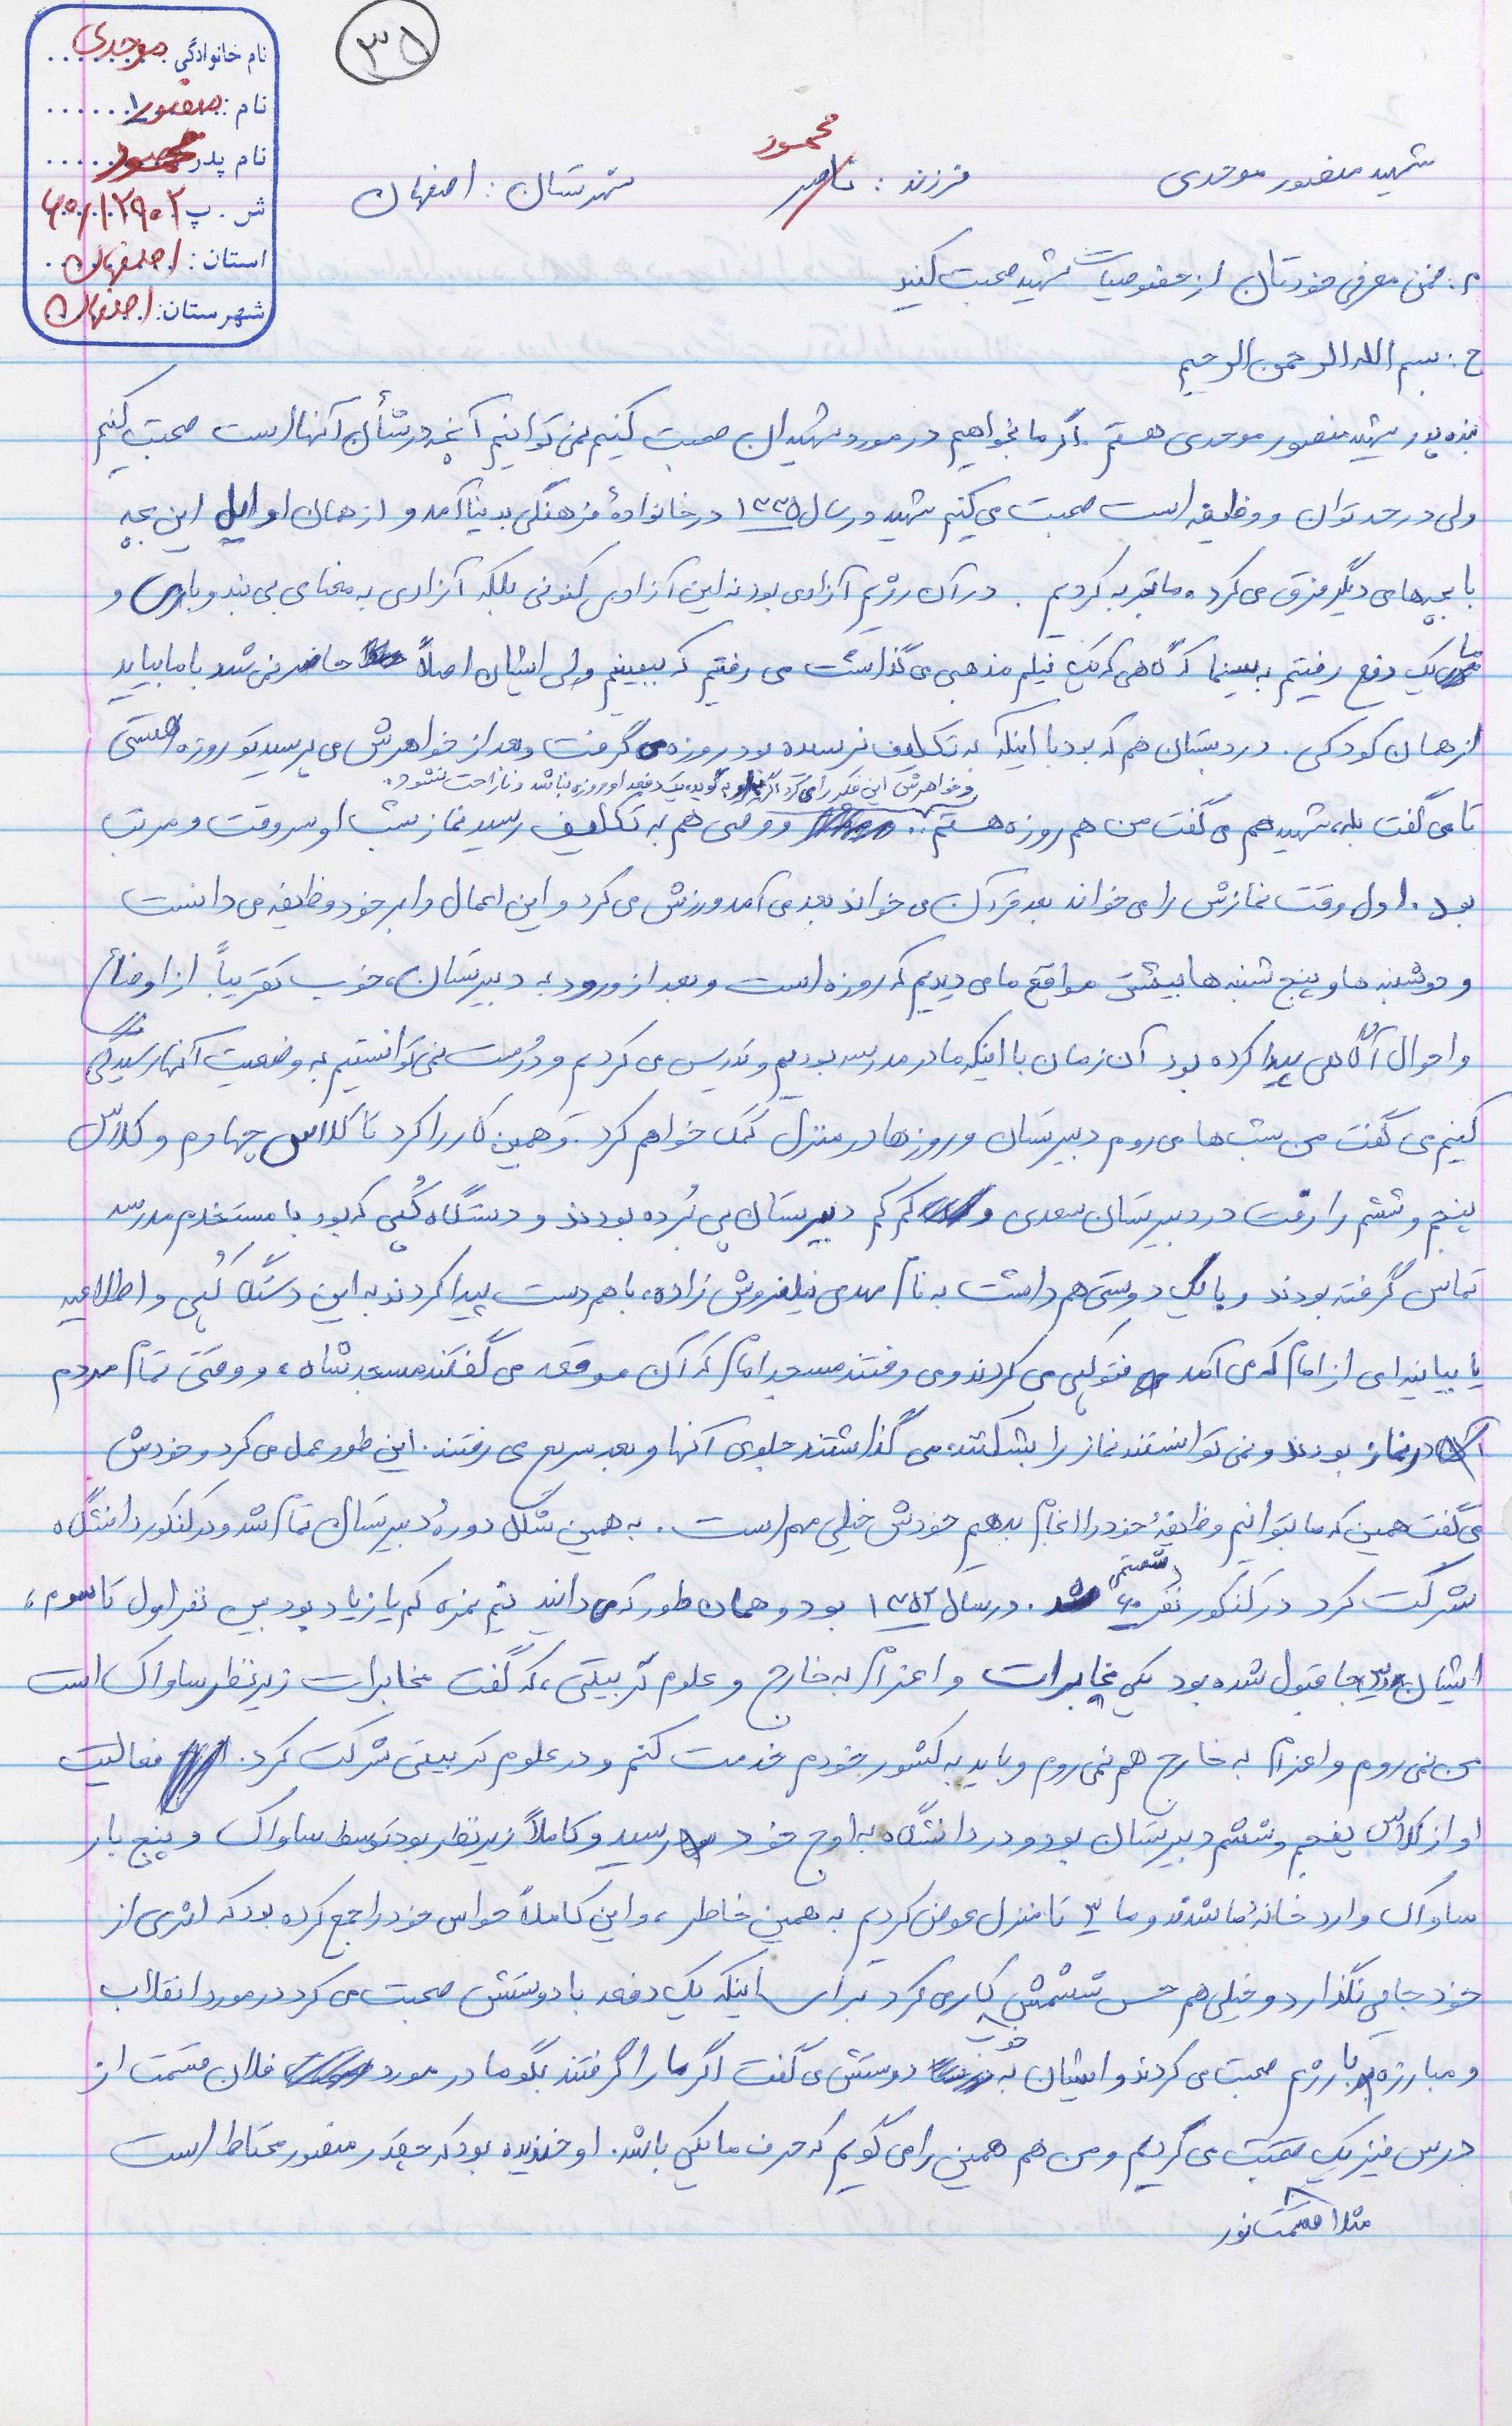 ۳۵
نام خانوادگی: موحدی
نام: منصور
نام پدر: محمود
ش. پ ۶۰۱۲۹۰۲
استان: اصفهان
شهرستان: اصفهان
شهید منصور موحدی فرزند: ناصر محمود شهرستان: اصفهان
م: ضمن معرفی خودتان از خصوصیات شهید صحبت کنید
ج: بسم الله الرحمن الرحیم
بنده پدر شهید منصور موحدی هستم. اگر ما بخواهیم در مورد شهیدان صحبت کنیم نمی توانیم آنچه در شأن آنها است صحبت کنیم
ولی در حد توان و وظیفه است صحبت می کنیم شهید در سال ۱۳۳۵ در خانوادهٔ فرهنگی بدنیا آمد و از همان اوایل این بچه
با بچه های دیگر فرق می کرد. ما تجربه کردیم. در آن رژیم آزادی بود نه این آزادی کنونی بلکه آزادی به معنای بی بند و باری و
ما یک دفع رفتیم به سینما که گاهی که یک فیلم مذهبی می گذاشت می رفتیم که ببینیم ولی ایشان اصلاً حاضر نمی شد با ما بیاید
از همان کودکی. در دبستان هم که بود با اینکه به تکلیف نرسیده بود روزه می گرفت و بعد از خواهرش می پرسید تو روزه هستی
و خواهرش این فکر را می کرد اگر به او بگوید، یک دفعه او روزه نباشد و ناراحت نشود.
تا می گفت بله، شهید هم می گفت من هم روزه هستم. و وقتی هم به تکلیف رسید نماز شب او سر وقت و مرتب
بود. اول وقت نمازش را می خواند بعد قرآن می خواند بعد می آمد ورزش می کرد و این اعمال را بر خود وظیفه می دانست
و دوشنبه ها و پنج شنبه ها بیشتر مواقع ما می دیدیم که روزه است و بعد از ورود به دبیرستان، خوب تقریباً از اوضاع
و احوال آگاهی پیدا کرده بود آن زمان با اینکه ما در مدرسه بودیم و تدریس می کردیم و درست نمی توانستیم به وضعیت آنها رسیدگی
کنیم می گفت من شب ها می روم دبیرستان و روزها در منزل کمک خواهم کرد. و همین کار را کرد تا کلاس چهارم و کلاس
پنجم و ششم را رفت در دبیرستان سعدی و کم کم دبیرستان پی بُرده بودند و دستگاه کُپی که بود با مستخدم مدرسه
تماس گرفته بودند و با یک دوستی هم داشت به نام مهدی نیلفروش زاده، با هم دست پیدا کردند به این دستگاه کُپی و اطلاعیه
یا بیانیه ای از امام که می آمد فتوکپی می کردند و می رفتند مسجد امام که آن موقعه می گفتند مسجد شاه، و وقتی تمام مردم
در نماز بودند و نمی توانستند نماز را بشکنند، می گذاشتند جلوی آنها و بعد سریع می رفتند. این طور عمل می کرد و خودش
می گفت همین که ما بتوانیم وظیفهٔ خود را انجام بدهیم خودش خیلی مهم است. به همین شکل دورهٔ دبیرستان تمام شد و در کنکور دانشگاه
شرکت کرد در کنکور نفر ۶۰ شصتمی شد. در سال ۱۳۵۲ بود و همان طور که می دانید نیم نمره کم یا زیاد بود بین نفر اول تا سوم،
ایشان سه جا قبول شده بود یکی مخابرات و اعزام به خارج و علوم تربیتی، که گفت مخابرات زیر نظر ساواک است
من نمی روم و اعزام به خارج هم نمی روم و باید به کشور خودم خدمت کنم و در علوم تربیتی شرکت کرد. فعالیت
او از کلاس پنجم و ششم دبیرستان بود و در دانشگاه به اوج خود رسید و کاملاً زیر نظر بود توسط ساواک و پنج بار
ساواک وارد خانهٔ ما شدند و ما ۳ تا منزل عوض کردیم به همین خاطر، و این کاملاً حواس خود را جمع کرده بود که اثری از
خود جای نگذارد و خیلی هم حس ششمش خوب کار می کرد برای اینکه یک دفعه با دوستش صحبت می کرد در مورد انقلاب
و مبارزه با رژیم صحبت می کردند و ایشان به دوستش می گفت اگر ما را گرفتند بگو ما در مورد فلان قسمت از
درس فیزیک صحبت می کردیم و من هم همین را می گویم که حرف ما یکی باشد. او خندیده بود که چقدر منصور محتاط است
مثلا قسمت نور